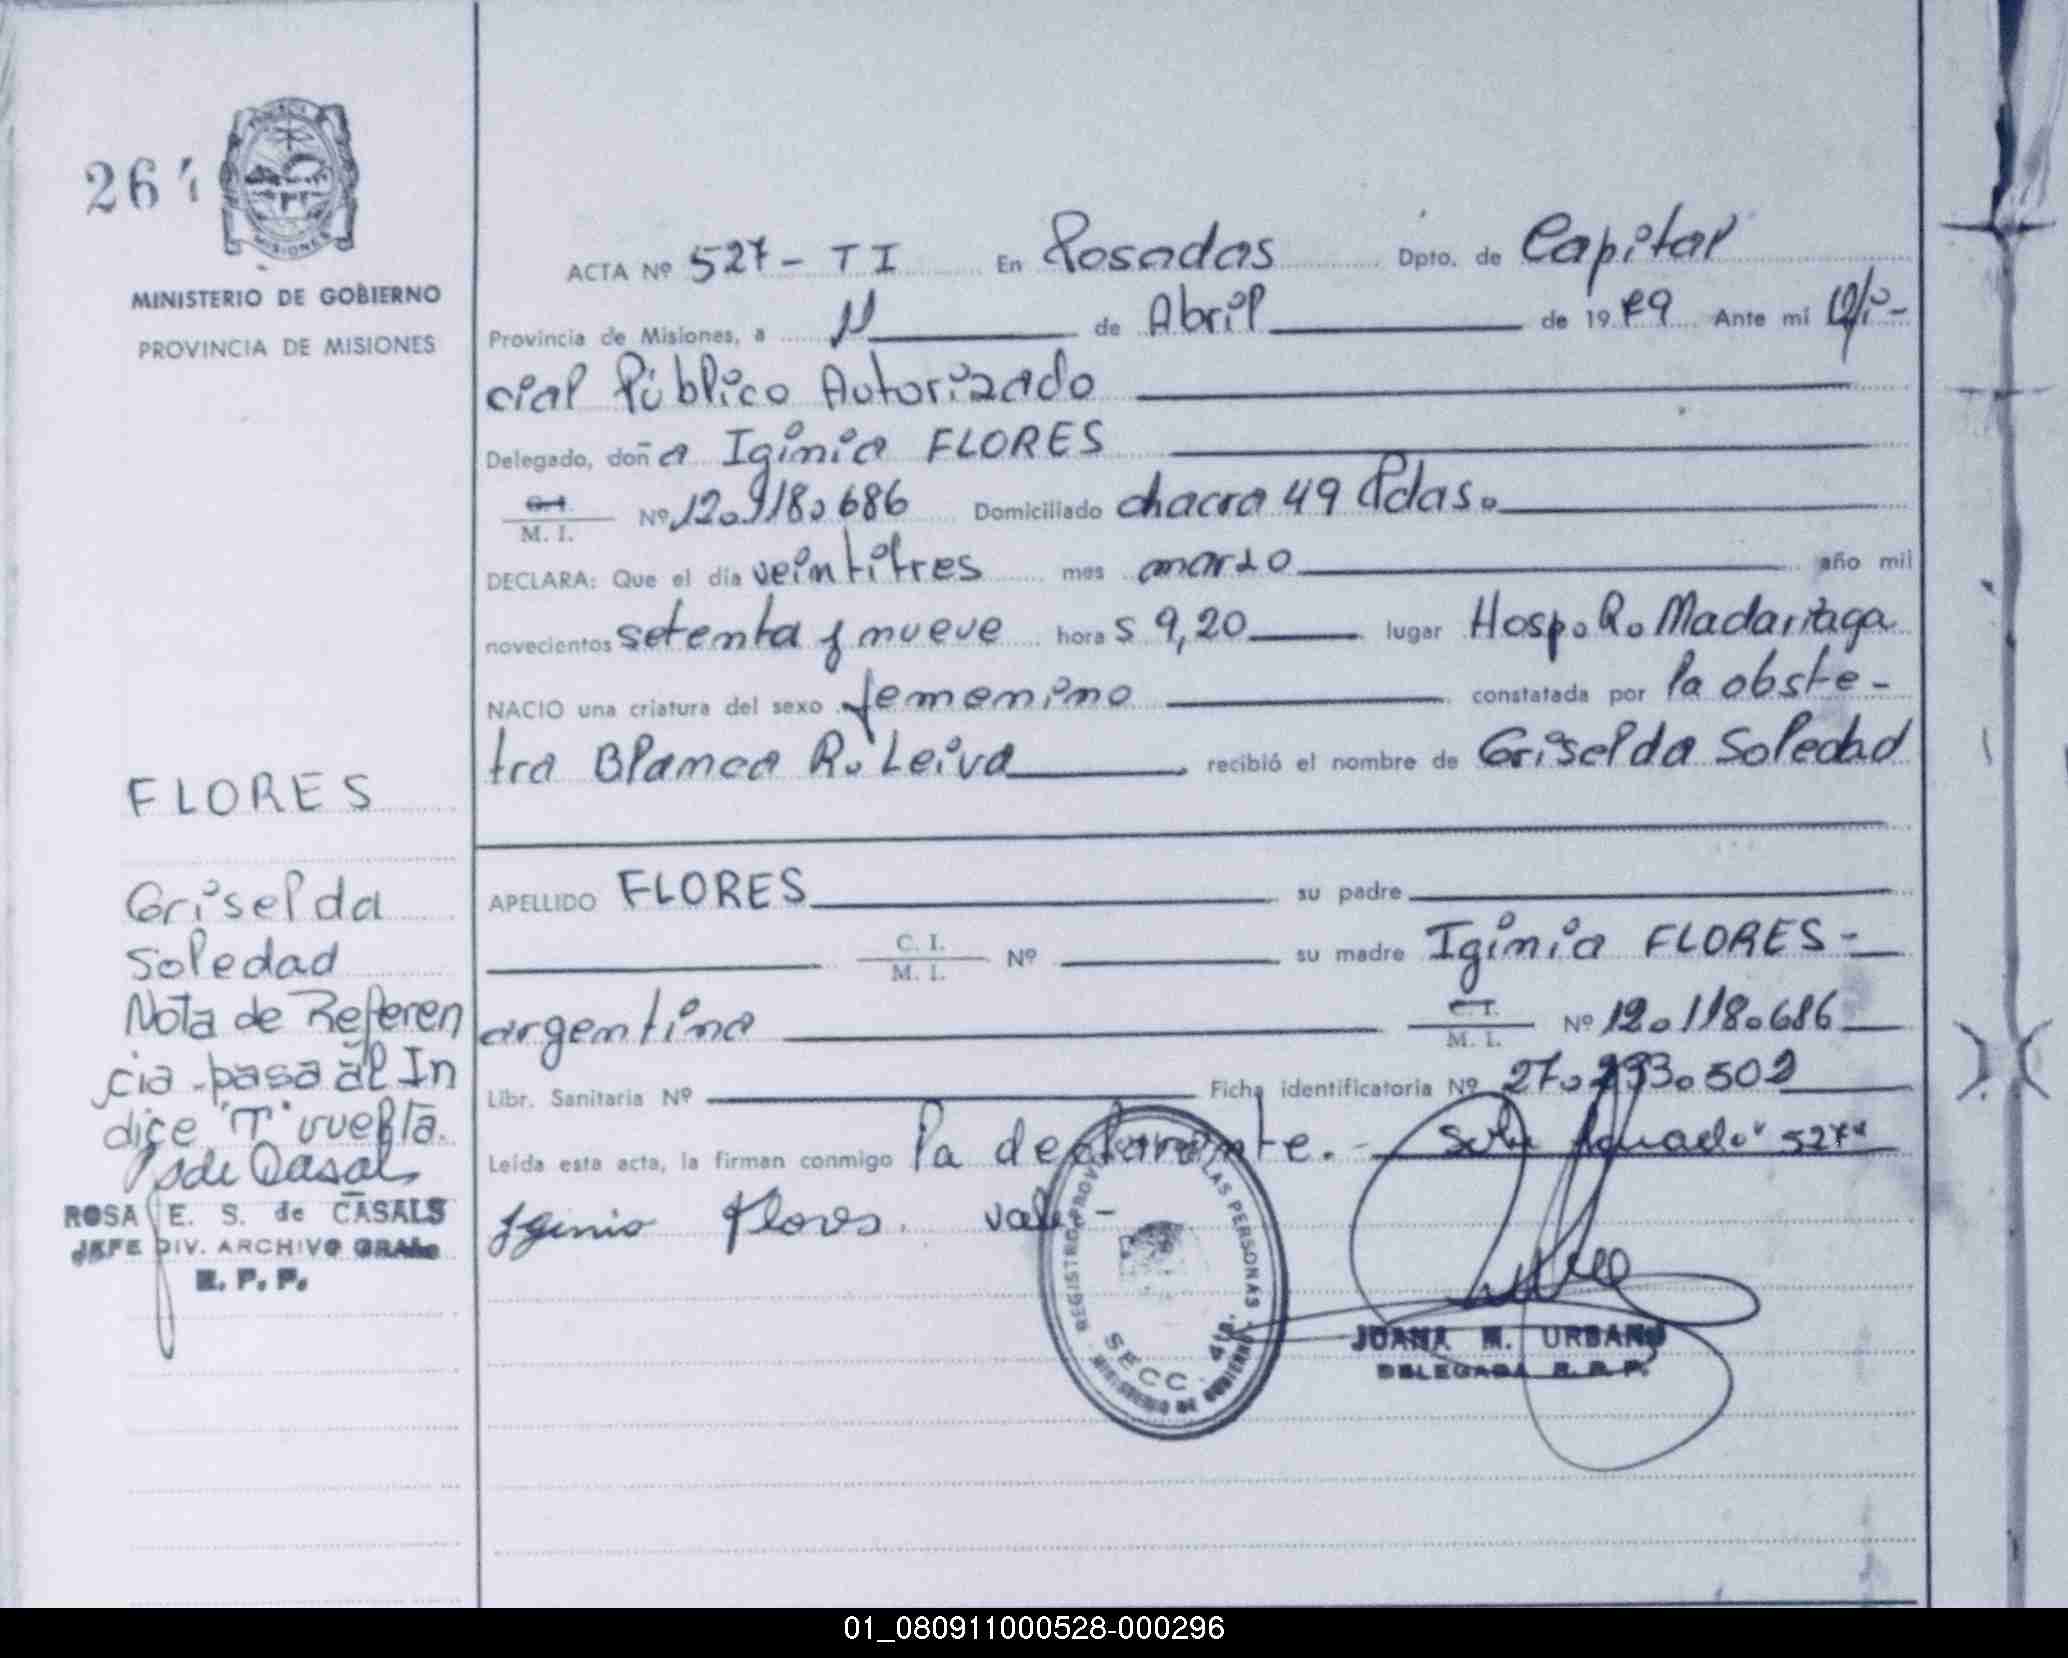 26
MISIONES
MINISTERIO DE GOBIERNO
PROVINCIA DE MISIONES
ACTA Nº 527 - T I En Posadas Dpto. de Capital
Provincia de Misiones, a 11 de Abril de 1979 Ante mi Ofi-
cial Público Autorizado
Delegado, doña Iginia FLORES
C.I.
M. I. Nº 12.118.686 Domiciliado chacra 49 Pdas.
DECLARA: Que el día veintitres mes marzo año mil
novecientos setenta y nueve hora s 9,20 lugar Hosp. R. Madariaga
NACIO una criatura del sexo femenino constatada por la obste-
tra Blanca R. Leiva recibió el nombre de Griselda Soledad
APELLIDO FLORES su padre
C. I.
M. I. Nº su madre Iginia FLORES -
argentina C. I.
M. I. Nº 12.118.686
Libr. Sanitaria Nº Ficha identificatoria Nº 27.293.502
Leída esta acta, la firman conmigo la declarante. - Sobre "527"
Iginia Flores. vale -
REGISTRO PROV. LAS PERSONAS
SECC. 4ta.
MINISTERIO DE GOBIERNO
JUANA M. URBANO
DELEGADA R. P. P.
FLORES
Griselda
Soledad
Nota de Referen
cia pasa al In
dice "T" vuelta.
S de Casals
ROSA E. S. de CASALS
JEFE DIV. ARCHIVO GRAL.
R. P. P.
01_080911000528-000296